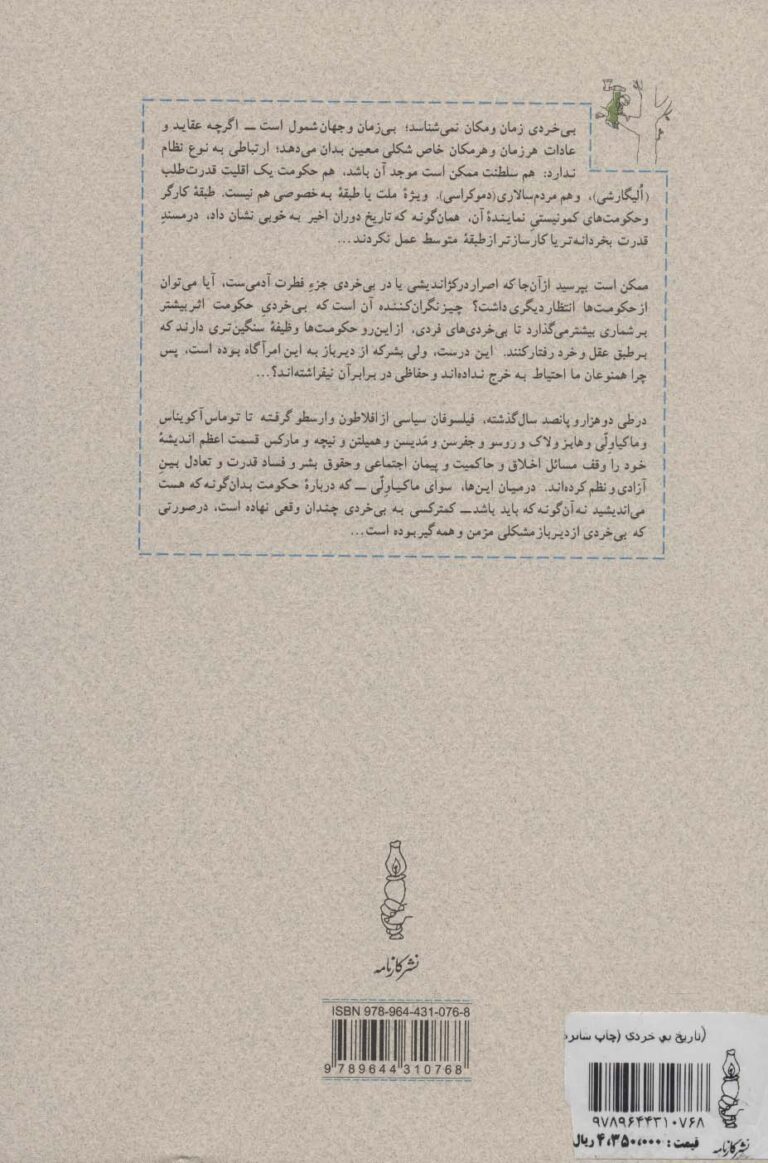 بی‌خردی زمان ومکان نمی‌شناسد؛ بی‌زمان وجهان‌شمول است ــ اگرچه عقاید و
عادات هرزمان وهرمکان خاص شکلی معین بدان می‌دهد؛ ارتباطی به نوع نظام
ندارد: هم سلطنت ممکن است موجد آن باشد، هم حکومت یک اقلیت قدرت‌طلب
(اُلیگارشی)، وهم مردم‌سالاری(دموکراسی). ویژهٔ ملت یا طبقهٔ بـه‌خصوصی هم نیست. طبقهٔ کارگر
وحکومت‌های کمونیستیِ نمایندهٔ آن، همان‌گونه که تاریخ دوران اخیر به خوبی نشان داد، درمسندِ
قدرت بخردانه‌تر یا کارسازتر ازطبقهٔ متوسط عمل نکردند...
ممکن است بپرسید ازآن‌جا که اصرار درکژاندیشی یا در بی‌خردی جزءِ فطرت آدمی‌ست، آیا می‌توان
ازحکومت‌ها انتظار دیگری داشت؟ چیز نگران‌کننده آن است که بی‌خردیِ حکومت اثر بیشتر
بر شماری بیشتر می‌گذارد تا بی‌خردی‌های فردی، ازاین‌رو حکومت‌ها وظیفهٔ سنگین‌تری دارند که
برطبق عقل و خرد رفتار کنند. این درست، ولی بشر که از دیرباز به این امر آگاه بوده است، پس
چرا همنوعان ما احتیاط به خرج نداده‌اند و حفاظی در برابر آن نیفراشته‌اند؟...
درطی دوهزار و پانصد سال گذشته، فیلسوفان سیاسی از افلاطون و ارسطو گرفته تا توماس آکویناس
وماکیاولّی وهابز ولاک و روسو و جفرسن و مَدیسن و همیلتن و نیچه و مارکس قسمت اعظم اندیشهٔ
خود را وقف مسائل اخلاق و حاکمیت و پیمان اجتماعی وحقوق بشر و فساد قدرت و تعادل بین
آزادی و نظم کرده‌اند. درمیان این‌ها، سوای ماکیاولّی ــ که دربارهٔ حکومت بدان‌گونه که هست
می‌اندیشید نه آن‌گونه که باید باشد ــ کمترکسی به بی‌خردی چندان وقعی نهاده است، درصورتی
که بی‌خردی ازدیرباز مشکلی مزمن و همه‌گیر بوده است...
نشر کارنامه
ISBN 978-964-431-076-8
9 789644 310768
(تاریخ بی خردی (چاپ
۹۷۸۹۶۴۴۳۱۰۷۶۸
قیمت: ۴،۳۵۰،۰۰۰ ریال
نشر کارنامه